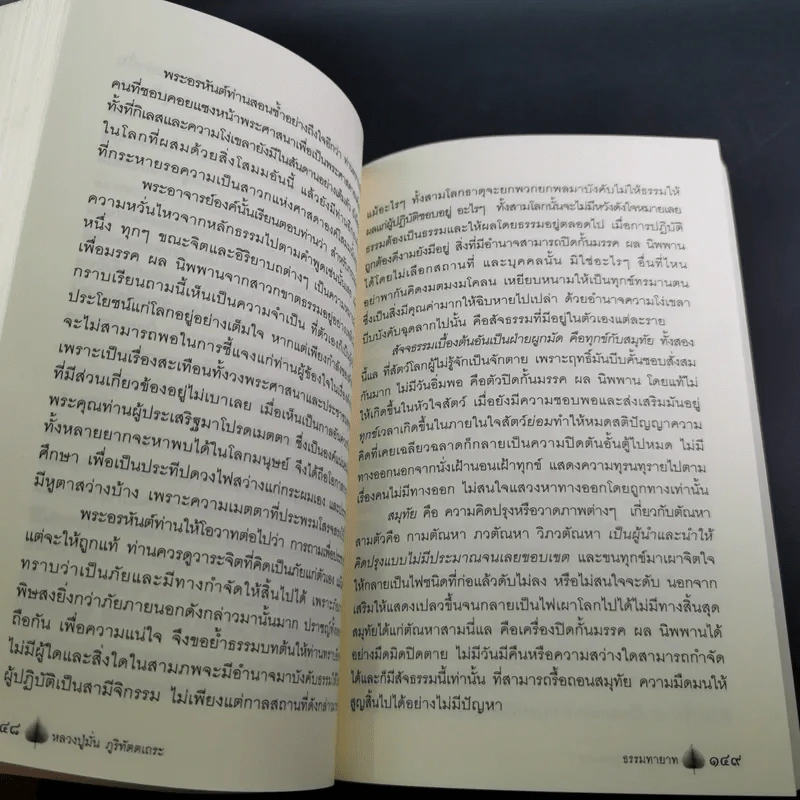 พระอรหันต์ท่านสอนซ้ำอย่างถึงใจอีกว่า
คนที่ชอบคอยแซงหน้าพระศาสนาเพื่อเป็นพระศาสดา
ทั้งที่กิเลสและความโง่เขลายังมีในสันดานอย่างเต็มตัว
ในโลกที่ผสมด้วยสิ่งโสมมอันนี้ แล้วยังมีท่าน
ที่กระหายรอความเป็นสาวกแห่งศาสดาองค์
พระอาจารย์องค์นั้นเรียนตอบท่านว่า สำหรับ
ความหวั่นไหวจากหลักธรรมไปตามคำพูดเช่นนั้น
หนึ่ง ทุกๆ ขณะจิตและอิริยาบถต่างๆ เป็นความ
เพื่อมรรค ผล นิพพานจากสวากขาตธรรมอยู่อย่าง
กราบเรียนถามนี้เห็นเป็นความจำเป็น ที่ตัวเองก็
ประโยชน์แก่โลกอยู่อย่างเต็มใจ หากแต่เพียงกำลังของ
จะไม่สามารถพอในการชี้แจงแก่ท่านผู้ข้องใจในเรื่อง
เพราะเป็นเรื่องสะเทือนทั้งวงพระศาสนาและประชา
ที่มีส่วนเกี่ยวข้องอยู่ไม่เบาเลย เมื่อเห็นเป็นกาลอัน
พระคุณท่านผู้ประเสริฐมาโปรดเมตตา ซึ่งเป็นองค์
ทั้งหลายยากจะหาพบได้ในโลกมนุษย์ จึงได้ถือโอกาส
ศึกษา เพื่อเป็นประทีปดวงไฟสว่างแก่กระผมเอง และ
มีหูตาสว่างบ้าง เพราะความเมตตาที่ประพรมโสรจสรง
พระอรหันต์ท่านให้โอวาทต่อไปว่า การถามเพื่อ
แต่จะให้ถูกแท้ ท่านควรดูวาระจิตที่คิดเป็นภัยแก่ตัวเอง
ทราบว่าเป็นภัยและมีทางกำจัดให้สิ้นไปได้ เพราะ
พิษสงยิ่งกว่าภัยภายนอกดังกล่าวมานั้นมาก ปราชญ์
ถือกัน เพื่อความแน่ใจ จึงขอย้ำธรรมบทต้นให้ท่านทราบ
ไม่มีผู้ใดและสิ่งใดในสามภพจะมีอำนาจมาบังคับธรรม
ผู้ปฏิบัติเป็นสามีจิกรรม ไม่เพียงแต่กาลสถานที่ดังกล่าว
๔๘ หลวงปู่มั่น ภูริทัตตเถระ
แม้อะไรๆ ทั้งสามโลกธาตุจะยกพวกยกพลมาบังคับไม่ให้ธรรมให้
ผลแก่ผู้ปฏิบัติชอบอยู่ อะไรๆ ทั้งสามโลกนั้นจะไม่มีหวังดังใจหมายเลย
ธรรมต้องเป็นธรรมและให้ผลโดยธรรมอยู่ตลอดไป เมื่อการปฏิบัติ
ถูกต้องดีงามยังมีอยู่ สิ่งที่มีอำนาจสามารถปิดกั้นมรรค ผล นิพพาน
ได้โดยไม่เลือกสถานที่ และบุคคลนั้น มิใช่อะไรๆ อื่นที่ไหน
อย่าพากันคิดงมตมงมโคลน เหยียบหนามให้เป็นทุกข์ทรมานตน
ซึ่งเป็นสิ่งมีคุณค่ามากให้ฉิบหายไปเปล่า ด้วยอำนาจความโง่เขลา
บีบบังคับฉุดลากไปนั้น คือสัจธรรมที่มีอยู่ในตัวเองแต่ละราย
สัจธรรมเบื้องต้นอันเป็นฝ่ายผูกมัด คือทุกข์กับสมุทัย ทั้งสอง
นี้แล ที่สัตว์โลกผู้ไม่รู้จักเป็นจักตาย เพราะฤทธิ์มันบีบคั้นชอบสั่งสม
กันมาก ไม่มีวันอิ่มพอ คือตัวปิดกั้นมรรค ผล นิพพาน โดยแท้ไม่
ให้เกิดขึ้นในหัวใจสัตว์ เมื่อยังมีความชอบพอและส่งเสริมมันอยู่
ทุกข์เวลาเกิดขึ้นในภายในใจสัตว์ย่อมทำให้หมดสติปัญญาความ
คิดที่เคยเฉลียวฉลาดก็กลายเป็นความปิดตันอั้นตู้ไปหมด ไม่มี
ทางออกนอกจากนั่งเฝ้านอนเฝ้าทุกข์ แสดงความทุรนทุรายไปตาม
เรื่องคนไม่มีทางออก ไม่สนใจแสวงหาทางออกโดยถูกทางเท่านั้น
สมุทัย คือ ความคิดปรุงหรือวาดภาพต่างๆ เกี่ยวกับตัณหา
สามตัวคือ กามตัณหา ภวตัณหา วิภวตัณหา เป็นผู้นำและนำให้
คิดปรุงแบบไม่มีประมาณจนเลยขอบเขต และขนทุกข์มาเผาจิตใจ
ให้กลายเป็นไฟชนิดที่ก่อแล้วดับไม่ลง หรือไม่สนใจจะดับ นอกจาก
เสริมให้แสดงเปลวขึ้นจนกลายเป็นไฟเผาโลกไปได้ไม่มีทางสิ้นสุด
สมุทัยได้แก่ตัณหาสามนี้แล คือเครื่องปิดกั้นมรรค ผล นิพพานได้
อย่างมืดมิดปิดตาย ไม่มีวันมีคืนหรือความสว่างใดสามารถกำจัด
ได้และก็มีสัจธรรมนี้เท่านั้น ที่สามารถรื้อถอนสมุทัย ความมืดมนให้
สูญสิ้นไปได้อย่างไม่มีปัญหา
ธรรมทายาท ๑๔๙